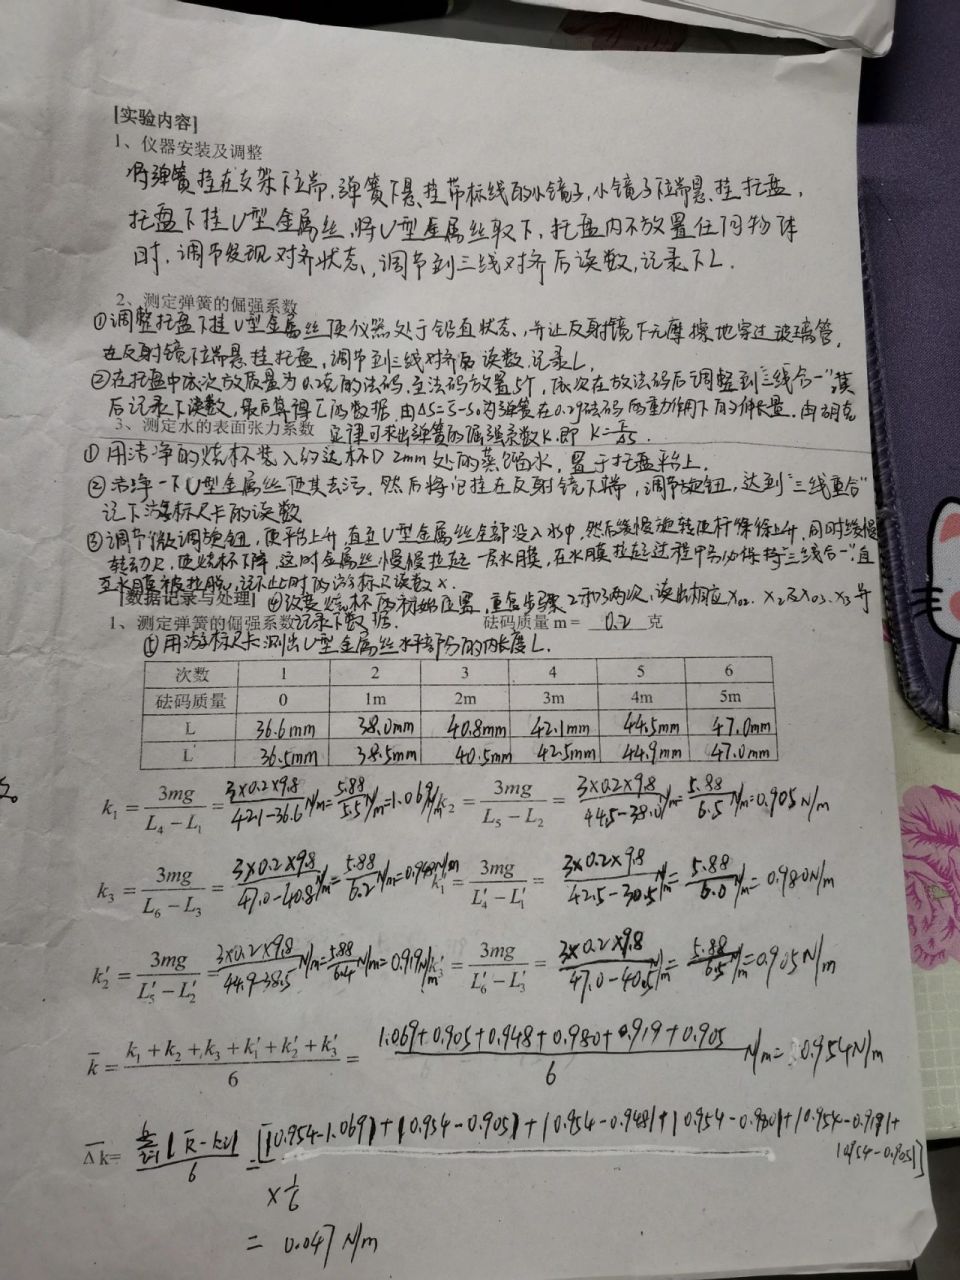 [实验内容]
1、仪器安装及调整
将弹簧挂在支架下端,弹簧下悬挂带标线的小镜子,小镜子下端悬挂托盘,
托盘下挂U型金属丝,将U型金属丝取下,托盘内不放置任何物体
时,调节发现对齐状态,调节到三线对齐后读数,记录下L.
2、测定弹簧的倔强系数
①调整托盘下挂U型金属丝使仪器处于铅直状态,并让反射镜下无摩擦地穿过玻璃管,
在反射镜下端悬挂托盘,调节到三线对齐后读数,记录L.
②在托盘中依次放质量为0.2克的法码,至法码放置5个,依次在放法码后调整到"三线合一",
后记录下读数,最后算得L的数据,由ΔS=S-S₀为弹簧在0.2g砝码的重力作用下的伸长量,由胡克
3、测定水的表面张力系数 定律可求出弹簧的倔强系数K,即 K=F/ΔS.
①用洁净的烧杯装入约达杯口2mm处的蒸馏水,置于托盘平台上.
②洁净一下U型金属丝使其去污,然后将它挂在反射镜下端,调节旋钮,达到"三线重合"
记下游标尺卡的读数
③调节微调旋钮,使平台上升,直至U型金属丝全部没入水中,然后缓慢旋转使杆徐徐上升,同时缓慢
转动,使烧杯下降,这时金属丝慢慢拉起一层水膜,在水膜拉起过程中务必保持"三线合一",直
至水膜被拉脱,记下此时的游标尺读数x.
[数据记录与处理] ④改变烧杯的初始位置,重复步骤2和3两次,读出相应x₀₂、x₂及x₀₃、x₃等
1、测定弹簧的倔强系数 记录下数据. 砝码质量 m = 0.2 克
⑤用游标尺卡测出U型金属丝水平部分的内长度L.
次数 1 2 3 4 5 6
砝码质量 0 1m 2m 3m 4m 5m
L 36.6mm 38.0mm 40.8mm 42.1mm 44.5mm 47.0mm
L' 36.5mm 38.5mm 40.5mm 42.5mm 44.9mm 47.0mm
k₁ = 3mg/(L₄ − L₁) = 3×0.2×9.8/(42.1−36.6) N/m = 5.88/5.5 N/m = 1.069 N/m k₂ = 3mg/(L₅ − L₂) = 3×0.2×9.8/(44.5−38.0) N/m = 5.88/6.5 N/m = 0.905 N/m
k₃ = 3mg/(L₆ − L₃) = 3×0.2×9.8/(47.0−40.8) N/m = 5.88/6.2 N/m = 0.948 N/m k₁' = 3mg/(L₄' − L₁') = 3×0.2×9.8/(42.5−30.5) N/m = 5.88/6.0 N/m = 0.980 N/m
k₂' = 3mg/(L₅' − L₂') = 3×0.2×9.8/(44.9−38.5) N/m = 5.88/6.4 N/m = 0.919 N/m k₃' = 3mg/(L₆' − L₃') = 3×0.2×9.8/(47.0−40.5) N/m = 5.88/6.5 N/m = 0.905 N/m
k̄ = (k₁ + k₂ + k₃ + k₁' + k₂' + k₃')/6 = (1.069+0.905+0.948+0.980+0.919+0.905)/6 N/m = 0.954 N/m
Δ̄k = Σ|k̄-ki|/6 = [|0.954-1.069|+|0.954-0.905|+|0.954-0.948|+|0.954-0.980|+|0.954-0.919|+
|0.954-0.905|]
×1/6
= 0.047 N/m